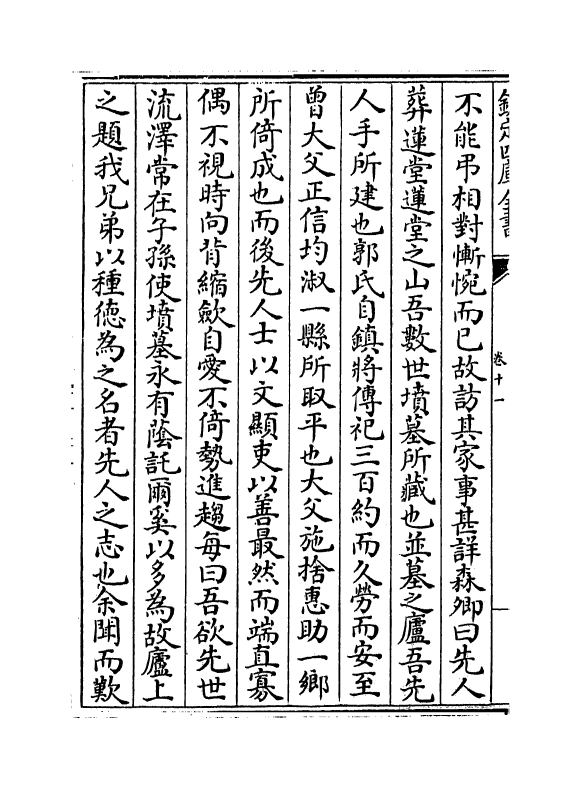 欽定四庫全書
卷十一
不能弔相對慚惋而已故訪其家事甚詳森卿曰先人
葬蓮堂蓮堂之山吾數世墳墓所藏也並墓之廬吾先
人手所建也郭氏自鎮將傳祀三百約而久勞而安至
曾大父正信均淑一縣所取平也大父施捨惠助一鄉
所倚成也而後先人士以文顯吏以善最然而端直寡
偶不視時向背縮歛自愛不倚勢進趨每曰吾欲先世
流澤常在子孫使墳墓永有蔭託爾奚以多為故廬上
之題我兄弟以種德為之名者先人之志也余聞而歎